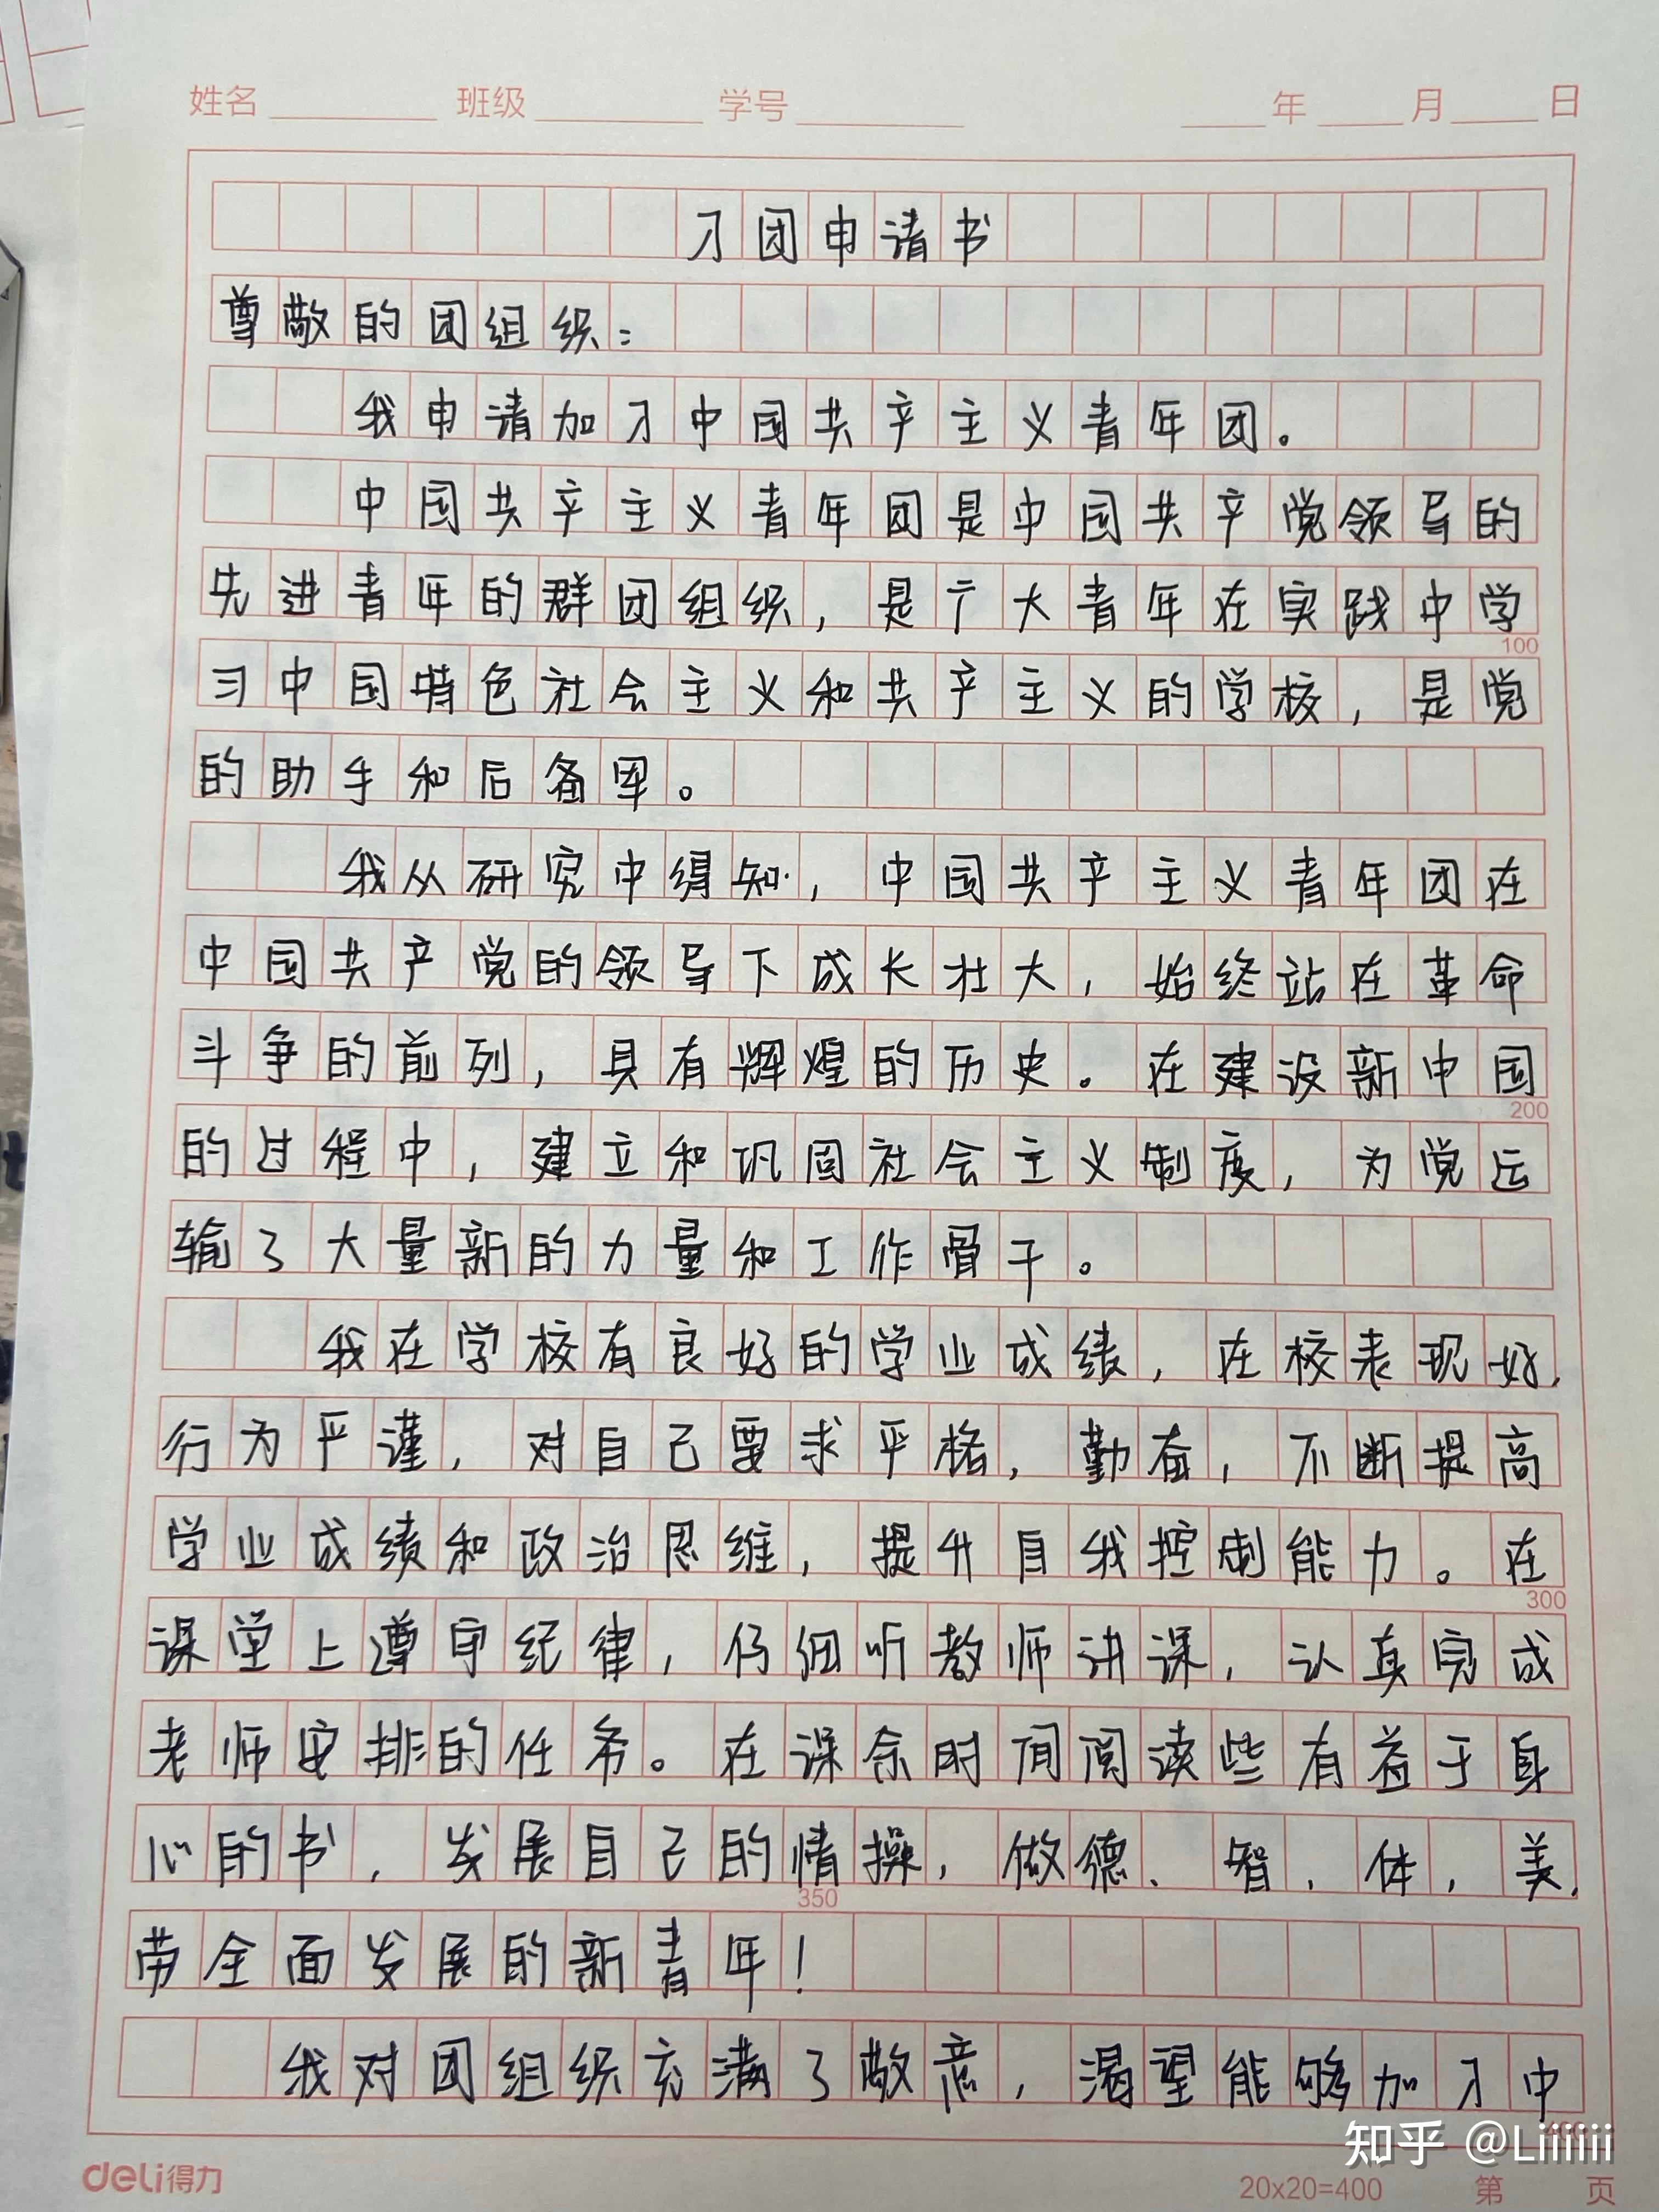 姓名 班级 学号 年 月 日
入团申请书
尊敬的团组织：
我申请加入中国共产主义青年团。
中国共产主义青年团是中国共产党领导的
先进青年的群团组织，是广大青年在实践中学
100
习中国特色社会主义和共产主义的学校，是党
的助手和后备军。
我从研究中得知，中国共产主义青年团在
中国共产党的领导下成长壮大，始终站在革命
斗争的前列，具有辉煌的历史。在建设新中国
200
的过程中，建立和巩固社会主义制度，为党运
输了大量新的力量和工作骨干。
我在学校有良好的学业成绩，在校表现好，
行为严谨，对自己要求严格，勤奋，不断提高
学业成绩和政治思维，提升自我控制能力。在
300
课堂上遵守纪律，仔细听教师讲课，认真完成
老师安排的任务。在课余时间阅读些有益于身
心的书，发展自己的情操，做德、智、体，美，
350
劳全面发展的新青年！
我对团组织充满了敬意，渴望能够加入中
400
知乎 @Liiiiiii
deli得力 20x20=400 第 页